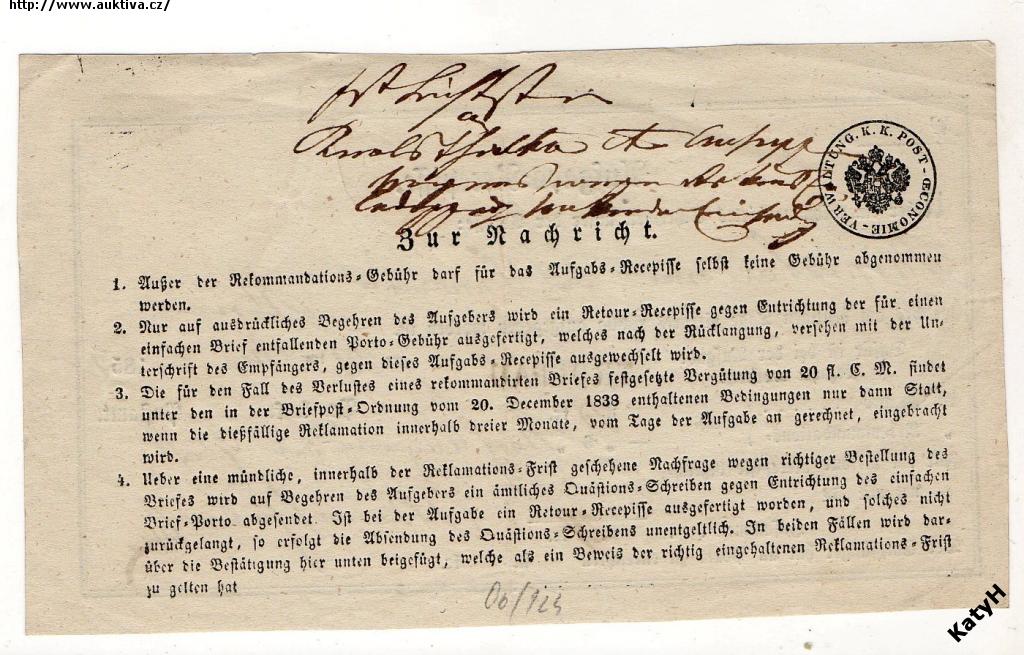 http://www.auktiva.cz/
VERWALTUNG. K. K. POST-ŒCONOMIE-
Zur Nachricht.
1. Außer der Rekommandations-Gebühr darf für das Aufgabs-Recepisse selbst keine Gebühr abgenommen
werden.
2. Nur auf ausdrückliches Begehren des Aufgebers wird ein Retour-Recepisse gegen Entrichtung der für einen
einfachen Brief entfallenden Porto-Gebühr ausgefertigt, welches nach der Rücklangung, versehen mit der Un-
terschrift des Empfängers, gegen dieses Aufgabs-Recepisse ausgewechselt wird.
3. Die für den Fall des Verlustes eines rekommandirten Briefes festgesetzte Vergütung von 20 fl. C. M. findet
unter den in der Briefpost-Ordnung vom 20. December 1838 enthaltenen Bedingungen nur dann Statt,
wenn die dießfällige Reklamation innerhalb dreier Monate, vom Tage der Aufgabe an gerechnet, eingebracht
wird.
4. Ueber eine mündliche, innerhalb der Reklamations-Frist geschehene Nachfrage wegen richtiger Bestellung des
Briefes wird auf Begehren des Aufgebers ein ämtliches Quästions-Schreiben gegen Entrichtung des einfachen
Brief-Porto abgesendet. Ist bei der Aufgabe ein Retour-Recepisse ausgefertigt worden, und solches nicht
zurückgelangt, so erfolgt die Absendung des Quästions-Schreibens unentgeltlich. In beiden Fällen wird dar-
über die Bestätigung hier unten beigefügt, welche als ein Beweis der richtig eingehaltenen Reklamations-Frist
zu gelten hat
KatyH